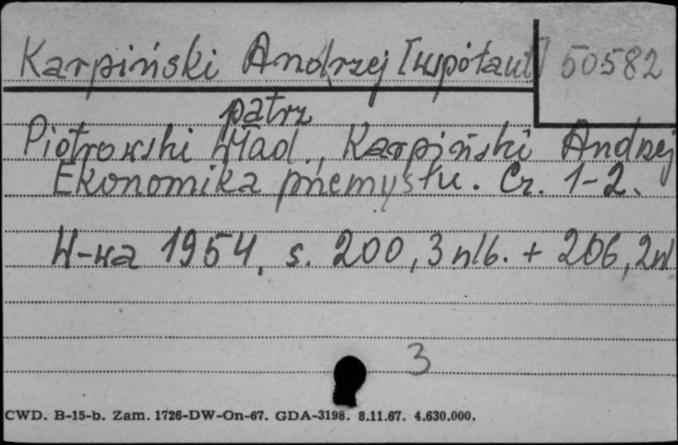 Karpiński Andrzej [współaut] 50582
patrz
Piotrowski Wład., Karpiński Andrzej
Ekonomika przemysłu. Cz. 1-2.
W-wa 1954, s. 200, 3 nlb. + 206, 2 nl
3
CWD. B-15-b. Zam. 1726-DW-On-67. GDA-3198. 8.11.67. 4.630.000.